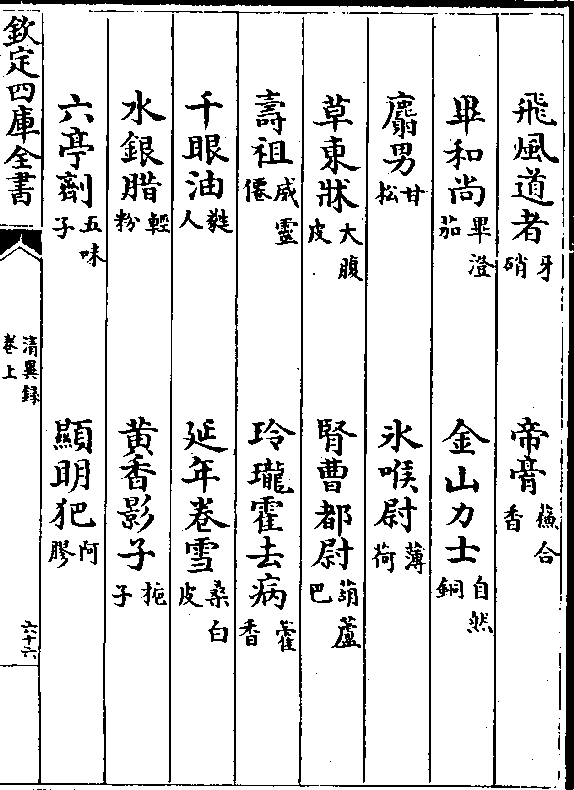 飛風道者牙硝　帝膏蘓合香
畢和尚畢澄茄　金山力士自然銅
麝男甘松　氷喉尉薄荷
草東牀大腹皮　腎曹都尉葫蘆巴
壽祖威靈僊　玲瓏霍去病藿香
千眼油蕤人　延年卷雪桑白皮
水銀腊輕粉　黄香影子梔子
六亭劑五味子　顯明犯阿膠
欽定四庫全書
清異録
卷上
六十六